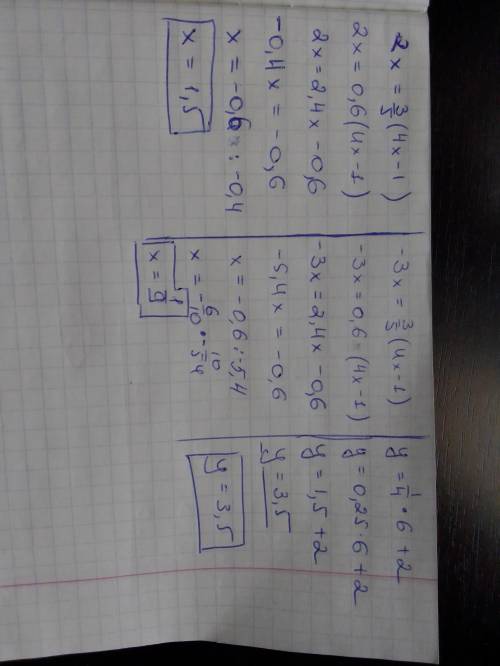 2x = 3/5 (4x-1)
2x = 0,6 (4x-1)
2x = 2,4x - 0,6
-0,4x = -0,6
x = -0,6 : -0,4
x = 1,5
-3x = 3/5 (4x-1)
-3x = 0,6 · (4x-1)
-3x = 2,4x - 0,6
-5,4x = -0,6
x = -0,6 : -5,4
x = -6/10 · -10/54
x = 1/9
y = 1/4 · 6 + 2
y = 0,25 · 6 + 2
y = 1,5 + 2
y = 3,5
y = 3,5